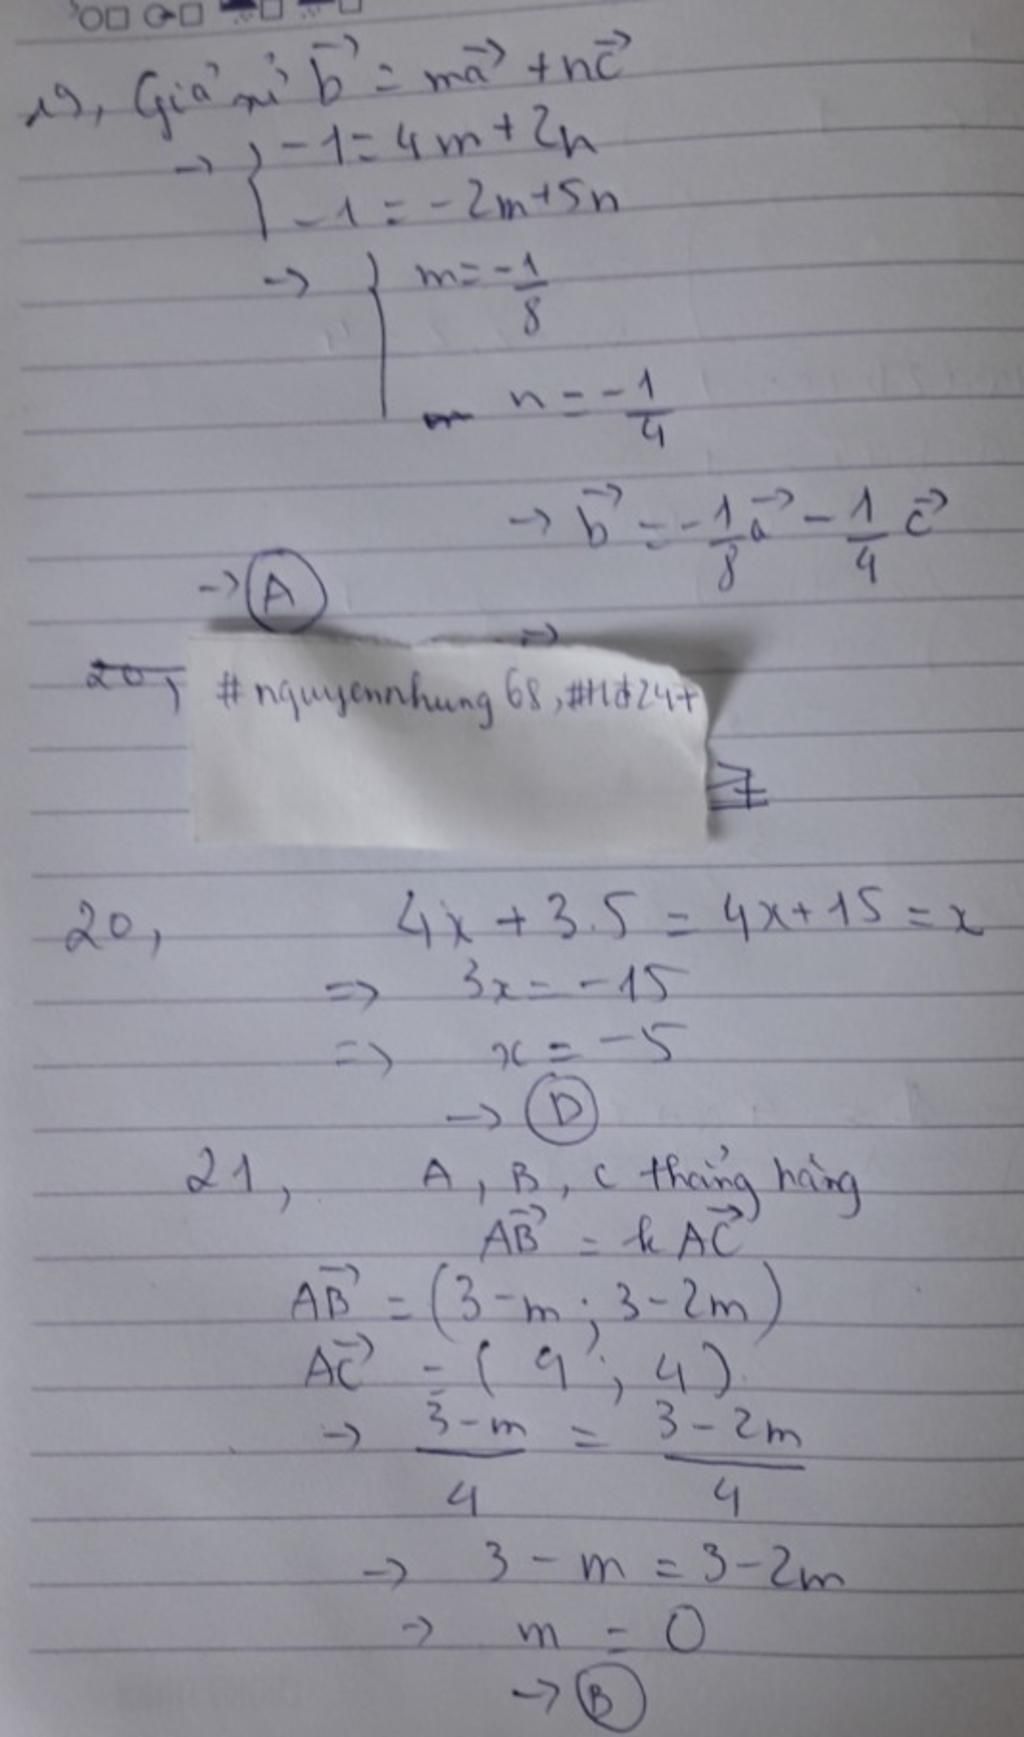 19, Giả sử b→ = ma→ + nc→
→ { -1 = 4m + 2n
-1 = -2m + 5n
→ { m = -1/8
n = -1/4
→ b→ = -1/8 a→ - 1/4 c→
→ A
20,
#nguyennhung68, #Hd24+
20, 4x + 3.5 = 4x + 15 = x
=> 3x = -15
=> x = -5
→ D
21, A, B, C thẳng hàng
AB→ = k AC→
AB→ = (3 - m; 3 - 2m)
AC→ = (4; 4)
→ 3 - m/4 = 3 - 2m/4
→ 3 - m = 3 - 2m
→ m = 0
→ B